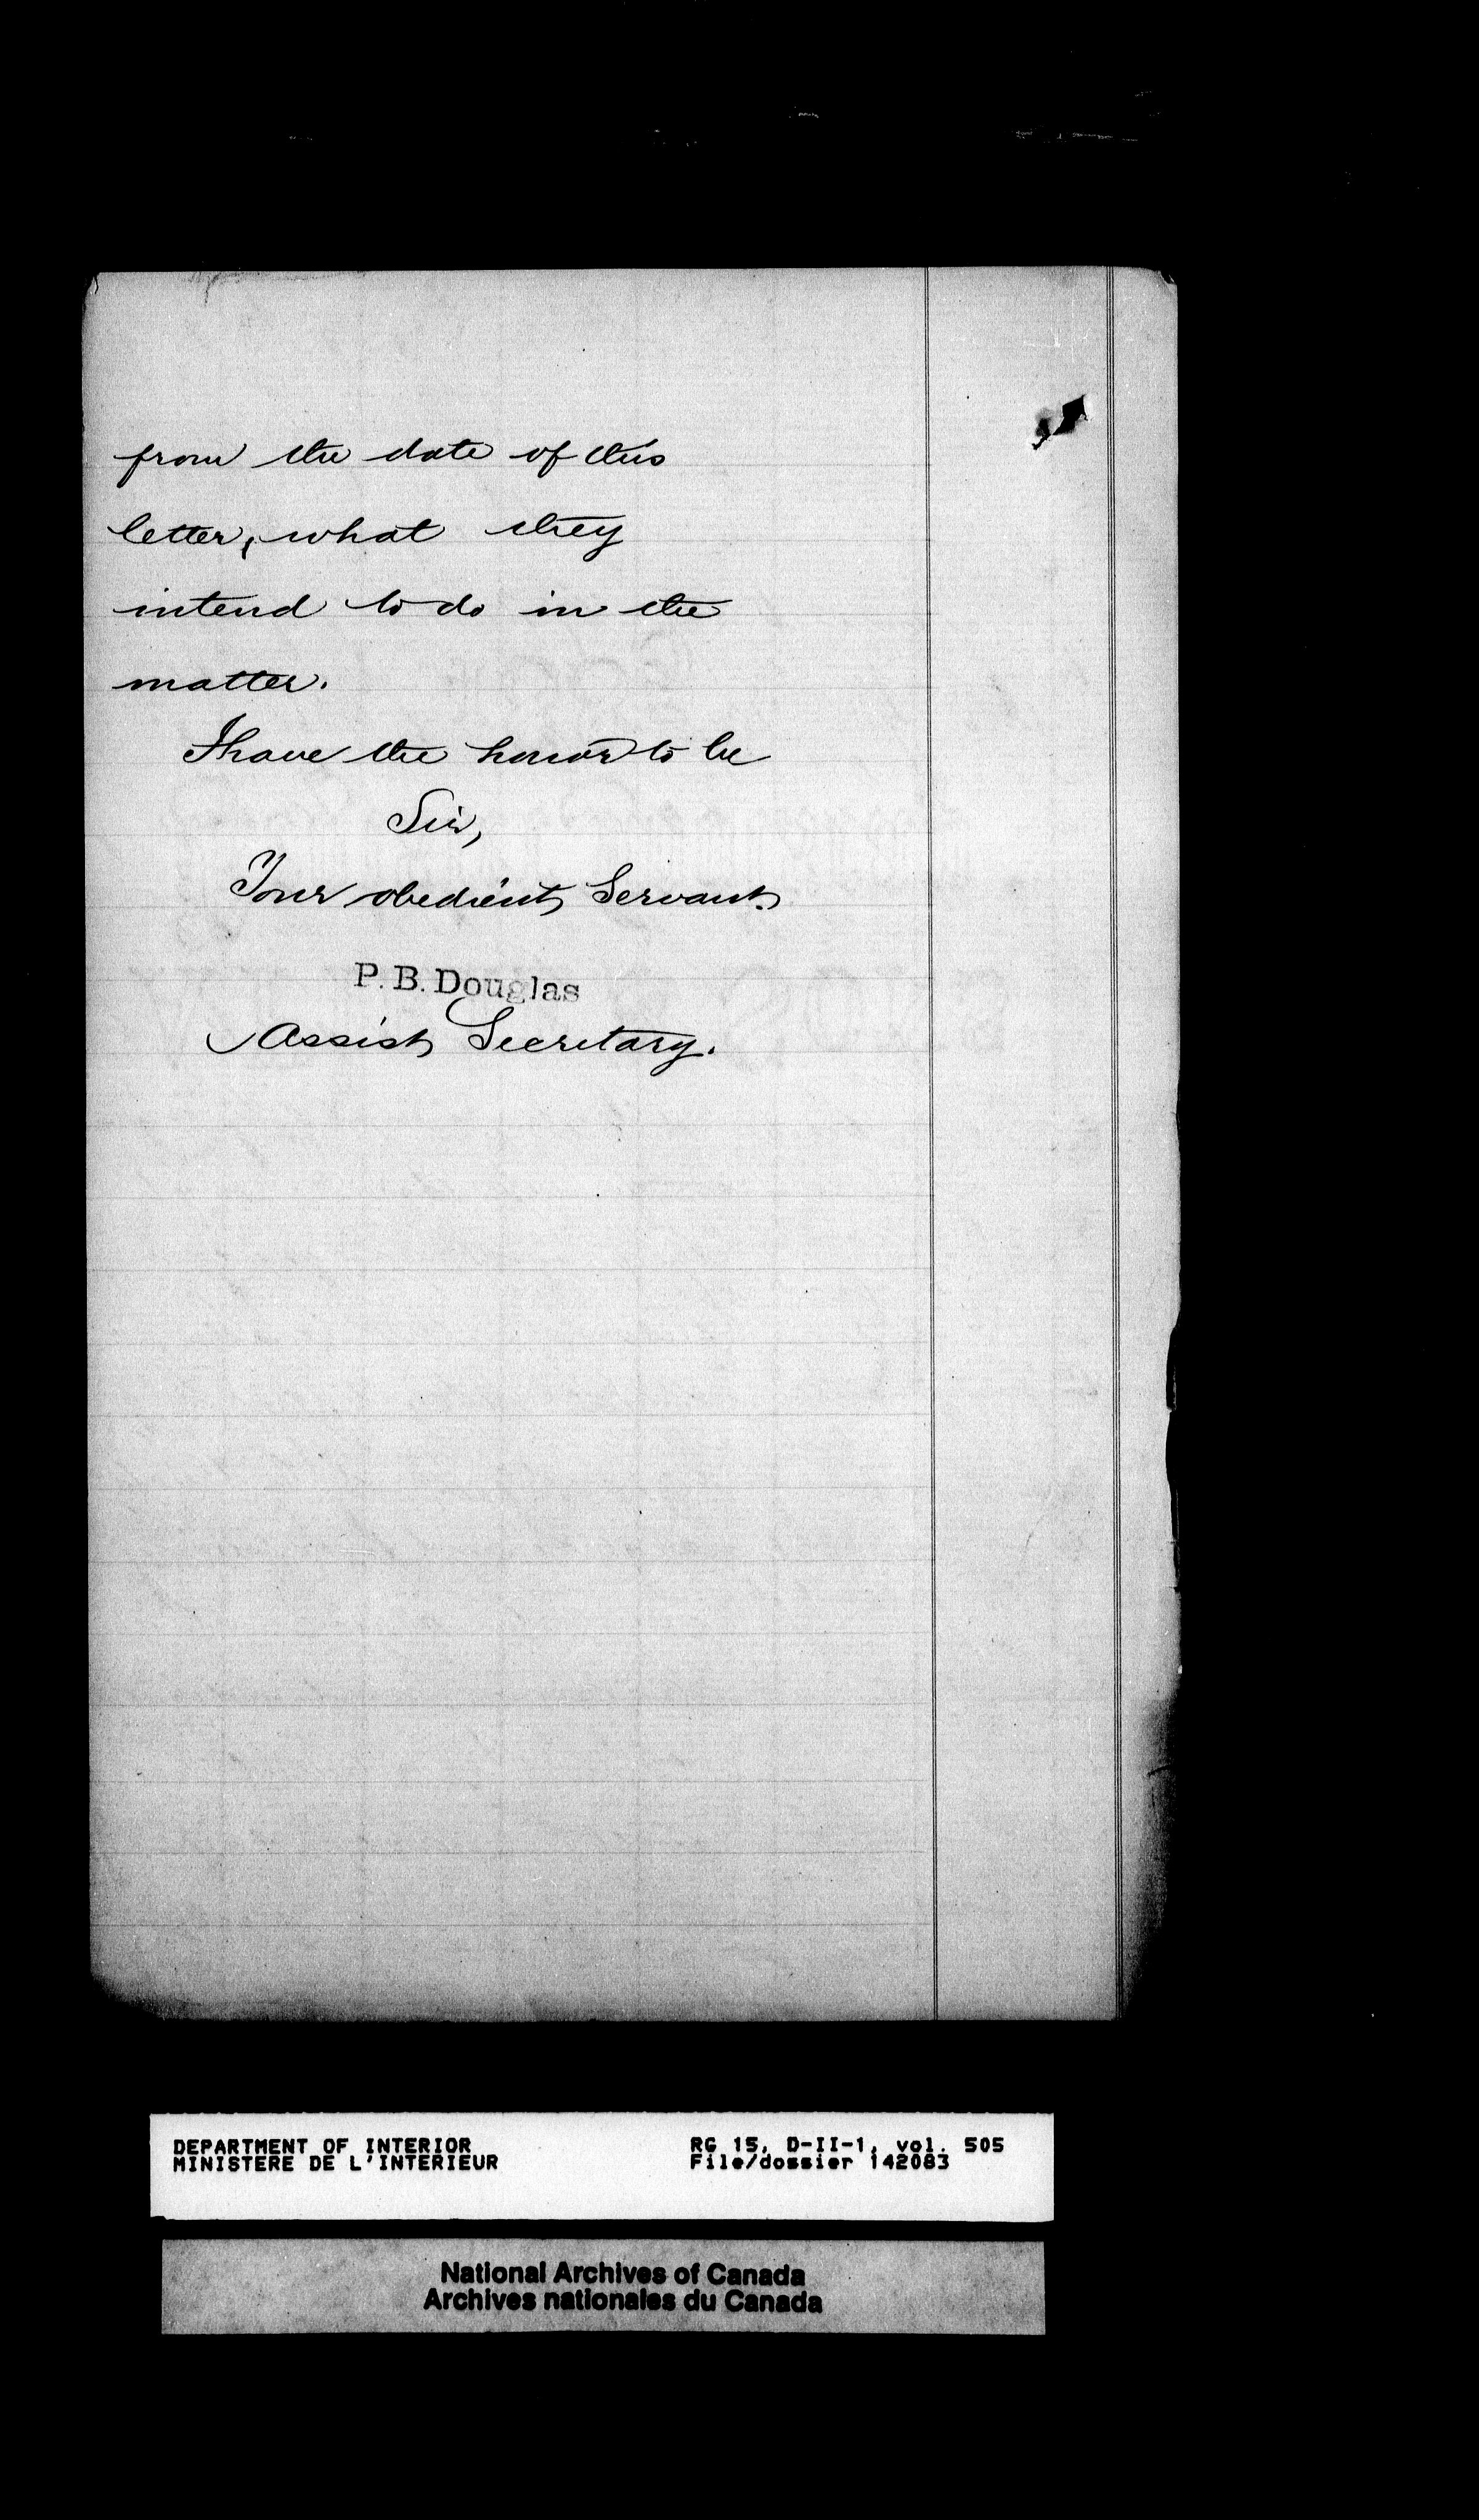 from the date of this
letter, what they
intend to do in the
matter.
I have the honor to be
Sir,
Your obedient Servant.
P. B. Douglas
Assist Secretary.
DEPARTMENT OF INTERIOR
MINISTERE DE L'INTERIEUR
RG 15, D-II-1, vol. 505
File/dossier 142083
National Archives of Canada
Archives nationales du Canada